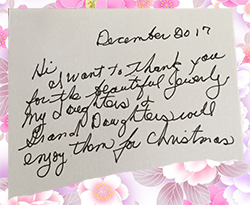 December 2017
Hi
I want to thank you
for the beautiful jewerly
My Daughters &
Grand Daughters will
enjoy them for Christmas